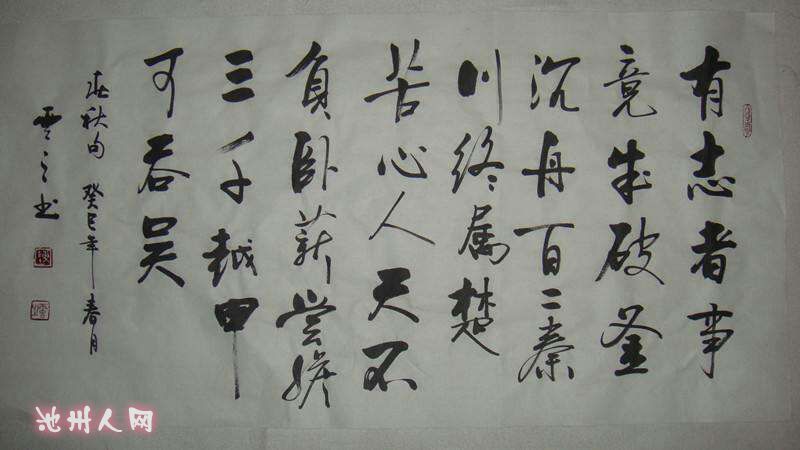 有志者事
竟成破釜
沉舟百二秦
川终属楚
苦心人天不
負卧薪嘗膽
三千越甲
可吞吴
秋句 癸巳年春月
雲之书
池州人网